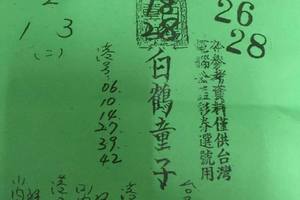 26
28
份參考資料僅供台灣
電腦公益彩券選號用
18
28
白鶴童子
港号
06.
10.
14.
27.
39.
42
1 3
(二)
港